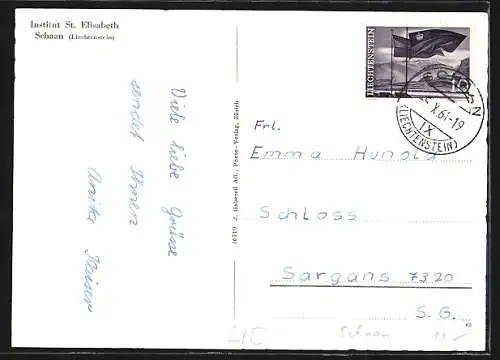 Institut St. Elisabeth
Schaan (Liechtenstein)
Viele liebe Grüsse
sendet Ihnen
Anita Kaiser
10719 J. Gaberell AG., Photo-Verlag, Zürich
LIECHTENSTEIN
X.61-19
IX
(LIECHTENSTEIN)
Frl.
Emma Hunold
Schloss
Sargans 7320
S. G.
Schaan